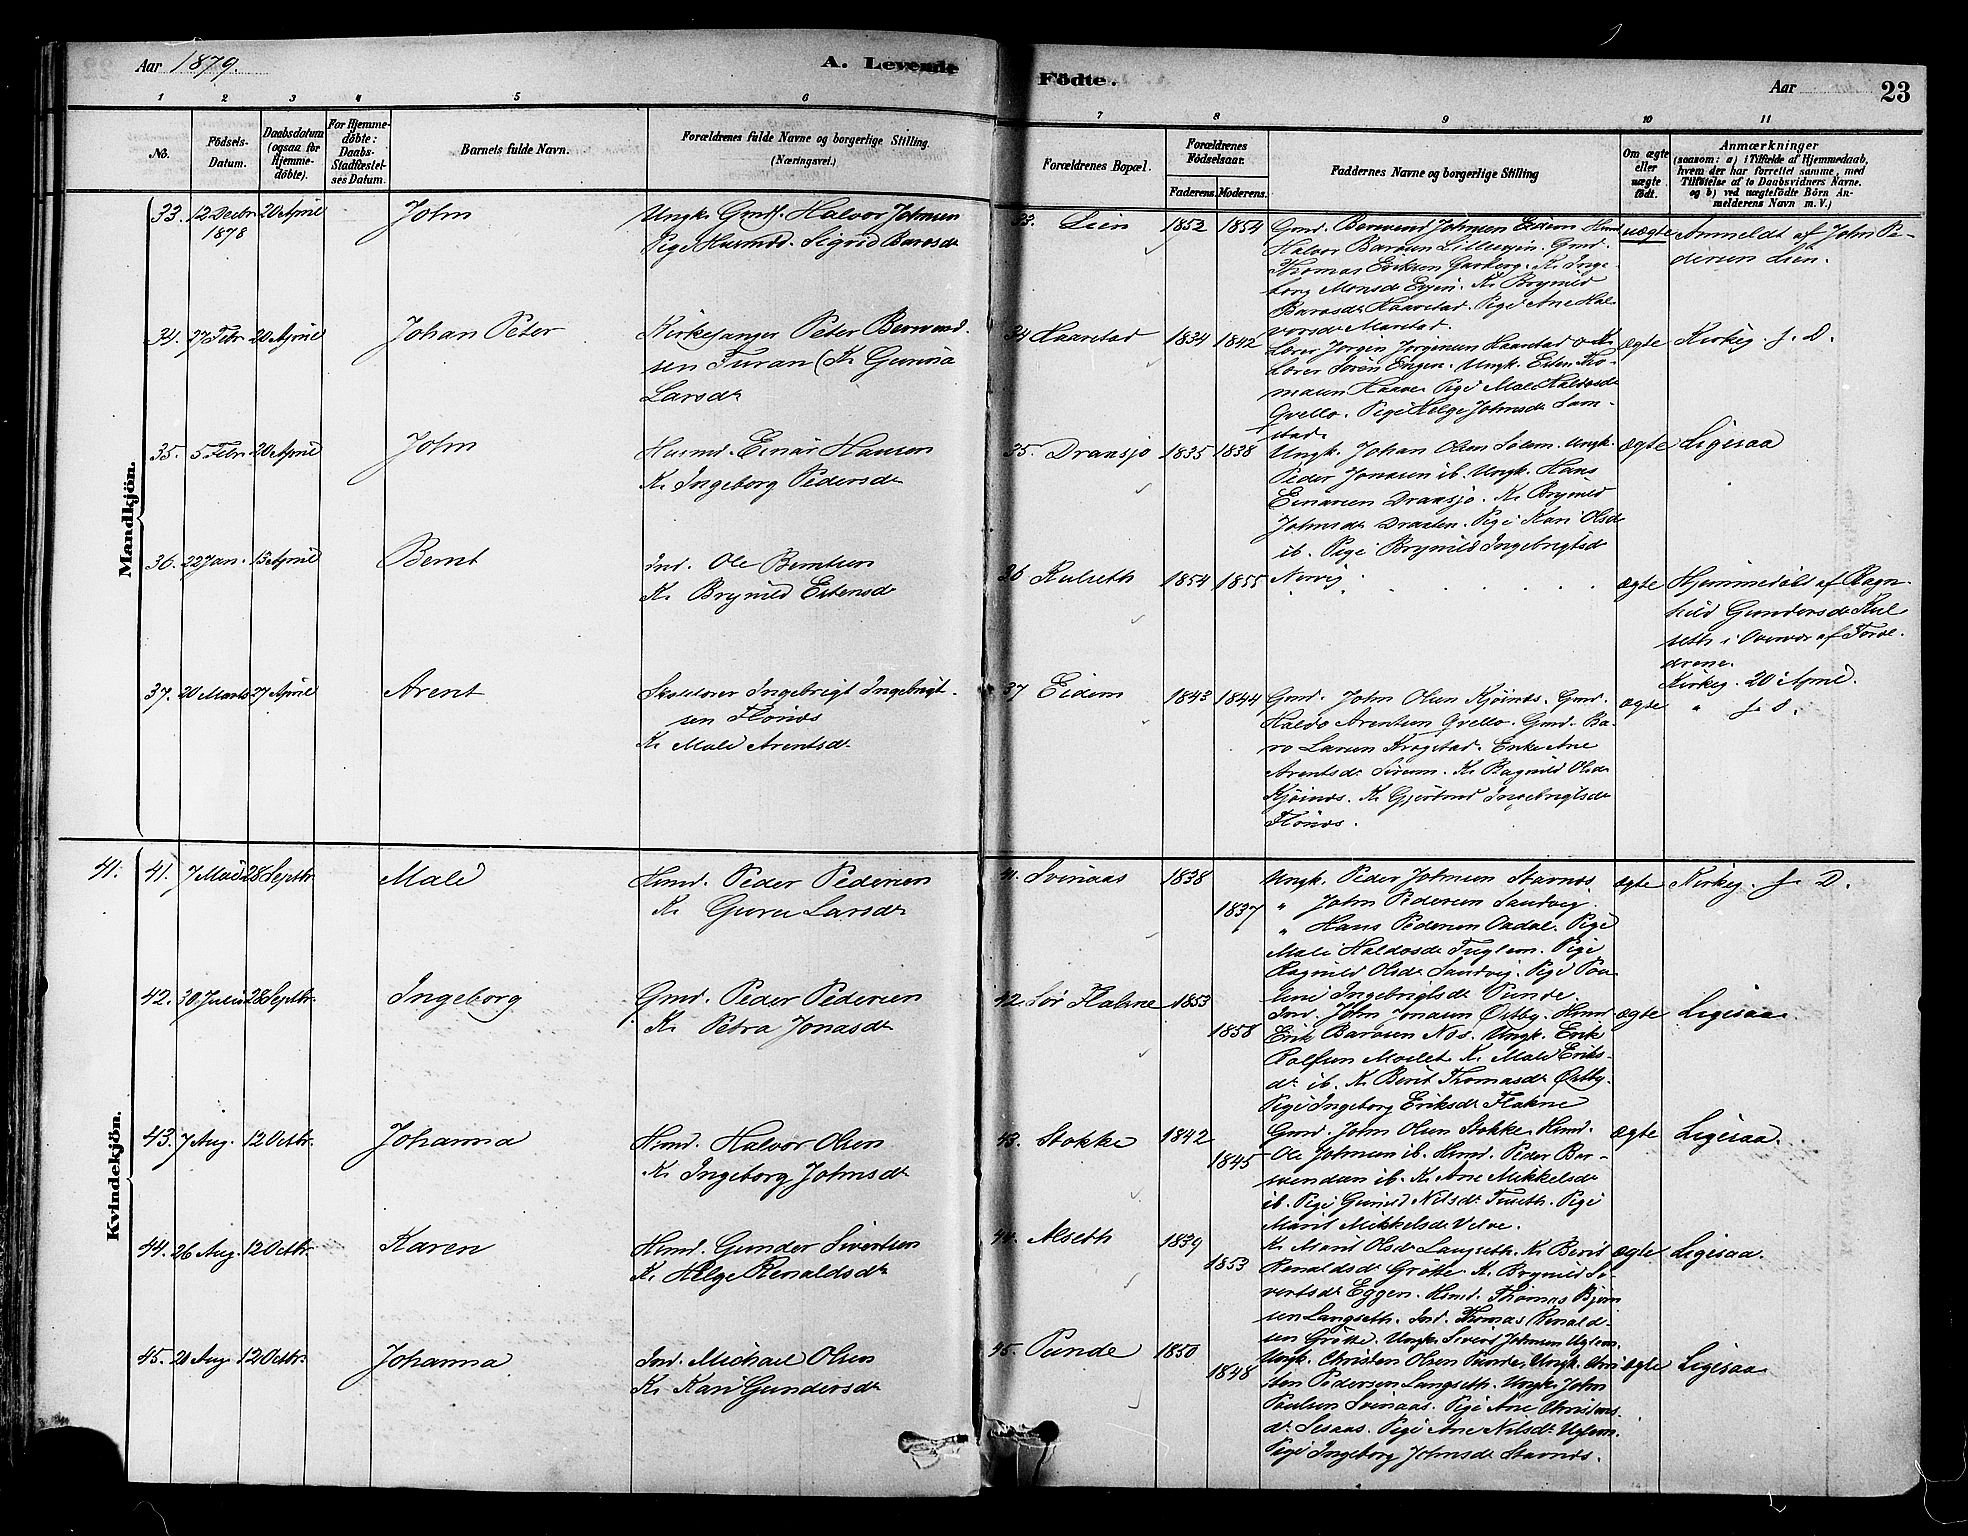 Aar 1879.
A. Levende
Födte.
Aar
23
1
2
3
4
5
6
7
8
9
10
11
No.
Födsels-
Datum.
Daabsdatum
(ogsaa for
Hjemme-
döbte).
For Hjemme-
döbte:
Daabs-
Stadfæstel-
ses Datum.
Barnets fulde Navn.
Forældrenes fulde Navne og borgerlige Stilling.
(Næringsvei.)
Forældrenes Bopæl.
Forældrenes
Födselsaar.
Faderens.
Moderens.
Faddernes Navne og borgerlige Stilling
Om ægte
eller
uægte
födt.
Anmærkninger
(saasom: a) i Tilfælde af Hjemmedaab,
hvem der har forrettet samme, med
Tilföielse af to Daabsvidners Navne.
og b) ved uægtefödte Börn An-
melderens Navn m. V.)
Mandkjön.
33. 12 Decbr 20 April John Ungk. Gmdf. Halvor Johnsen
1878 Pige Husmd. Sigrid Barosdr
33. Lien 1852 1854 Gmd. Bernvend Johnsen Eidem Husmd
Halvor Barosen Lilleevjen. Gmd.
Thomas Eriksen Garberg. K. Inge-
borg Monsdr Evjen. K. Brynild
Barosdr Haarstad. Pige Ane Hal-
vorsdr Marstad.
uægte Anmeldt af John Pe-
dersen Lien.
34. 27 Febr. 20 April Johan Peter Kirkesanger Peter Bernvend-
sen Furan (K. Gunna
Larsdr
34 Haarstad 1834 1842 Lærer Jörgen Jörgensen Haarstad o. K.
Lærer Sören Engen. Ungk. Esten Tho-
masen Haave. Pige Mali Haldosdr
Gvello. Pige Helge Johnsdr Sam-
stad.
ægte Kirkeg. f. D.
35. 5 Febr. 20 April John Husmd. Einar Hansen
K. Ingeborg Pedersdr
35. Dransjo 1835 1838 Ungk. Johan Olsen Solem. Ungk.
Peder Jonasen ib. Ungk. Hans
Einarsen Dransjo. K. Brynild
Johnsdr Draxten. Pige Kari Olsdr
ib. Pige Brynild Ingebrigtsdr
ægte Ligesaa
36. 22 Jan. 13 April Bernt Ind. Ole Berntsen
K. Brynild Estensdr
36 Kulseth 1854 1855 Nervig. ægte Hjemmedöbt af Ragn-
hild Gundersdr Kul
seth i Overvær af Foræl-
drene.
Kirkeg. 20 April.
37. 20 Marts 27 April Arent Skolelærer Ingebrigt Ingebrigt-
sen Flönæs
K. Mali Arentsdr
37 Eidem 1843 1844 Gmd. John Olsen Kjösnæs. Gmd.
Haldo Arentsen Gvello. Gmd. Ba-
ro Larsen Krogstad. Enke Ane
Arentsdr Sörum. K. Ragnild Olsdr
Kjösnæs. K. Gjertrud Ingebrigtsdr
Flönæs.
ægte " f. D.
Kvindekjön.
41. 41. 7 Mai 28 Septbr. Mali Hmd. Peder Pedersen
K. Guru Larsdr
41. Svinaas 1838 1837 Ungk. Peder Johnsen Starnes.
" John Pedersen Sandvig.
" Hans Pedersen Oxdal. Pige
Mali Haldosdr Fuglem. Pige
Ragnild Olsdr Sandvig. Pige Pau-
line Ingebrigtsdr Punde
ægte Kirkeg. f. D.
42. 30 Juli 28 Septbr. Ingeborg Gmd. Peder Pedersen
K. Petra Jonasdr
42. Sör Flakne 1853 1858 Ind. John Jonasen Östby. Hmd
Erik Barosen Nos. Ungk. Erik
Rolfsen Moslet. K. Mali Eriks-
dr ib. K. Berit Thomasdr Östby.
Pige Ingeborg Eriksdr Flakne
ægte Ligesaa
43. 7 Aug. 12 Octbr. Johanna Hmd. Halvor Olsen
K. Ingeborg Johnsdr
43. Stokke 1842 1845 Gmd. John Olsen Stokke. Hmd.
Ole Johnsen ib. Hmd. Peder Ber-
svendsen ib. K. Ane Mikkelsdr
ib. Pige Gunild Nilsdr Tuseth. Pige
Marit Mikkelsdr Velve.
ægte Ligesaa.
44. 26 Aug. 12 Octbr. Karen Hmd. Gunder Sivertsen
K. Helge Renaldsdr
44. Alseth 1839 1853 K. Marit Olsdr Langseth. K. Berit
Renaldsdr Grötte. K. Brynild Si-
vertsdr Eggen. Hmd. Thomas Björn
sen Langseth. Ind. Thomas Renald-
sen Grötte. Ungk. Sivert Johnsen Uglem.
ægte Ligesaa.
45. 21 Aug. 12 Octbr. Johanna Ind. Michael Olsen
K. Kari Gundersdr
45. Punde 1850 1848 Ungk. Christen Olsen Punde. Ungk. Chri
sten Pedersen Langseth. Ungk. John
Paulsen Svinaas. Pige Ane Christens-
dr Sesaas. Pige Ane Nilsdr Uglem.
Pige Ingeborg Johnsdr Starnes.
ægte Ligesaa